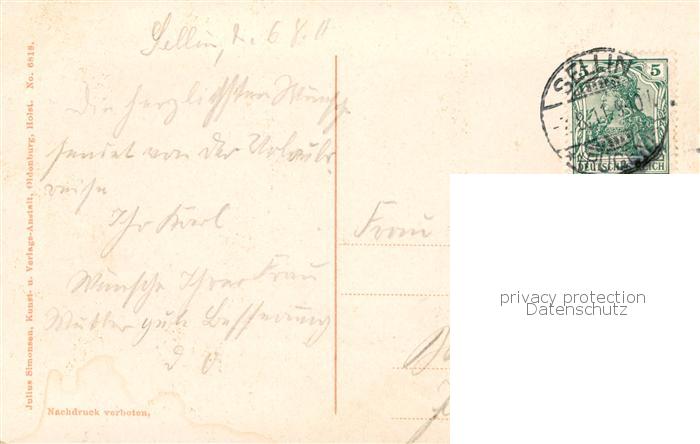 Sellin, d. 6 8. 11
Die herzlichsten Wünsche
sendet von der Urlaubs-
reise
Ihr Karl
Wünsche Ihrer Frau
Mutter gute Besserung
d O.
Frau
SELLIN
5
DEUTSCHES REICH
privacy protection
Datenschutz
Nachdruck verboten.
Julius Simonsen, Kunst- u. Verlags-Anstalt, Oldenburg, Holst. No. 6818.